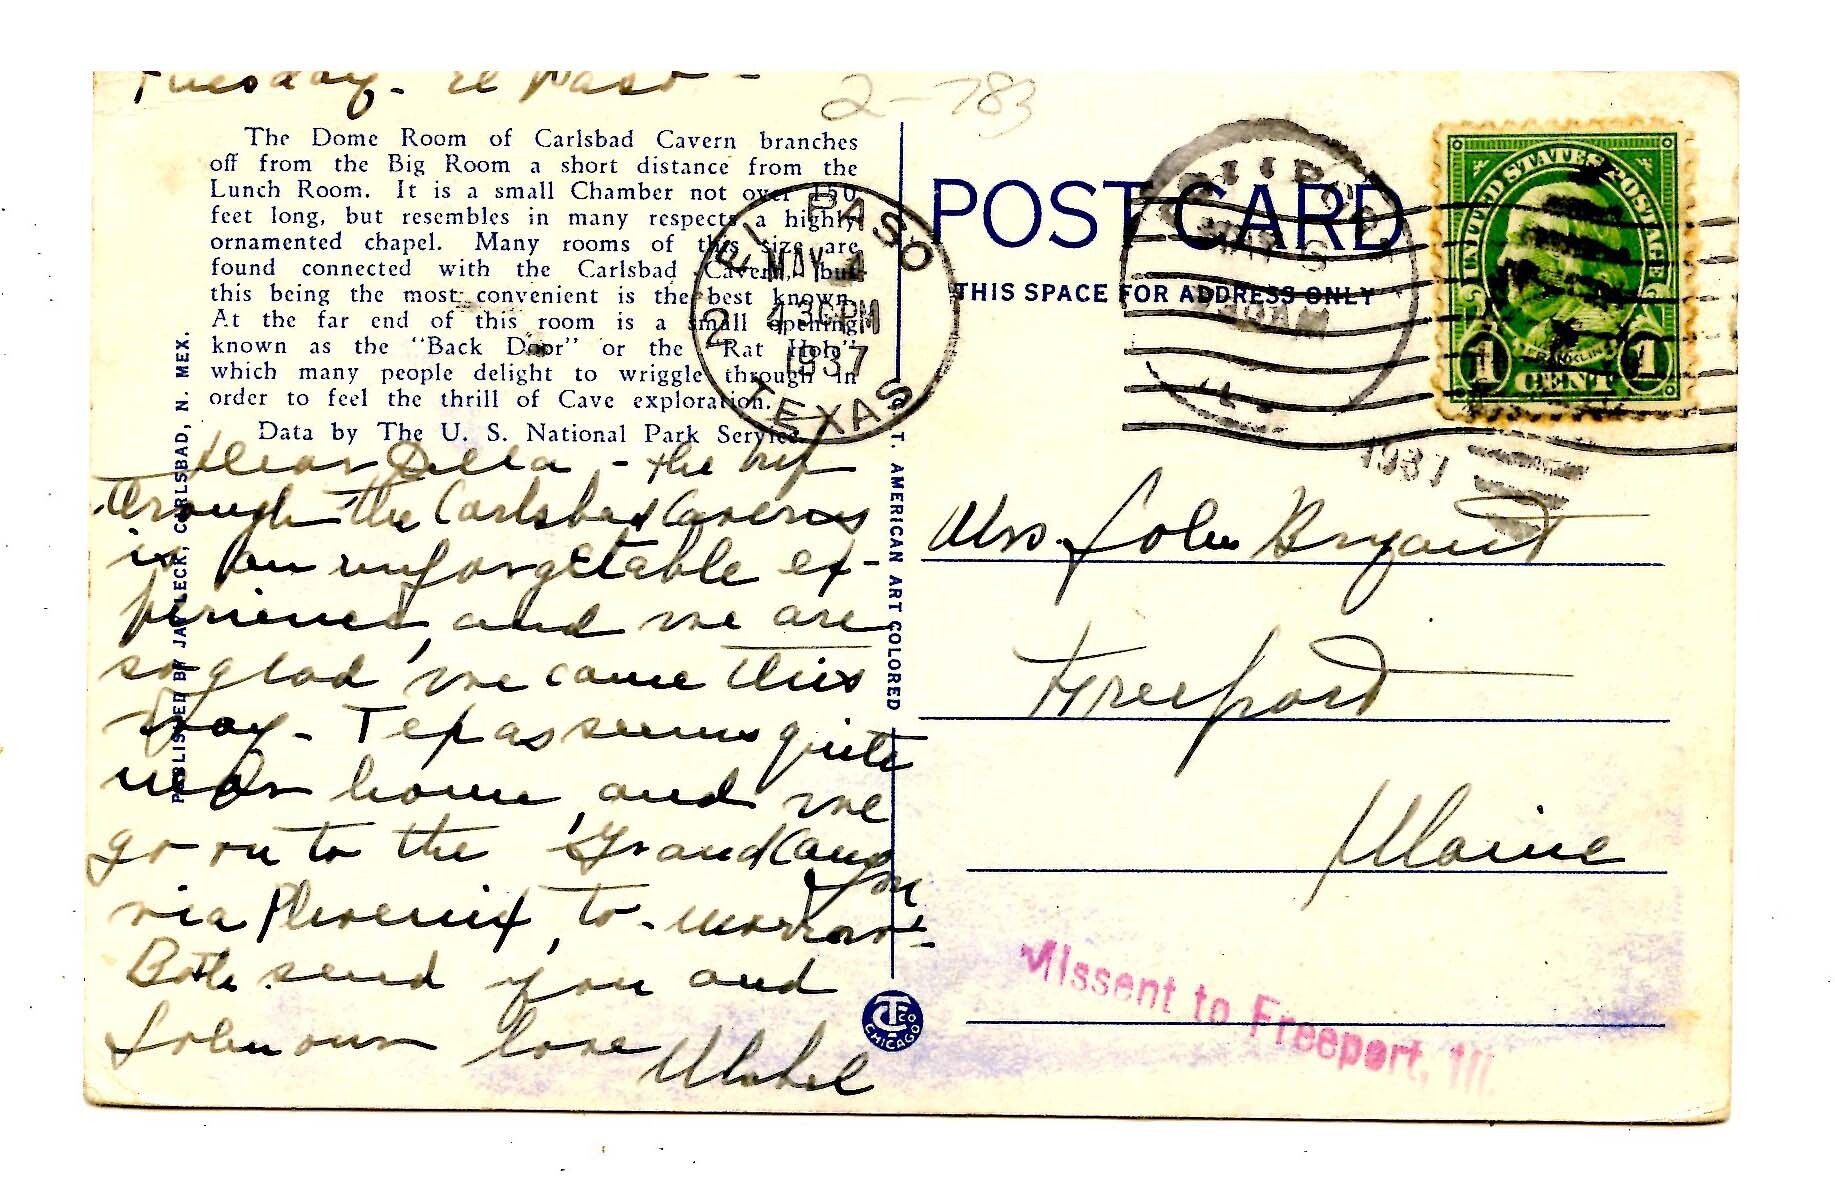 Tuesday - El Paso -
2-783
The Dome Room of Carlsbad Cavern branches
off from the Big Room a short distance from the
Lunch Room. It is a small Chamber not over 150
feet long, but resembles in many respects a highly
ornamented chapel. Many rooms of this size are
found connected with the Carlsbad Cavern, but
this being the most convenient is the best known.
At the far end of this room is a small opening
known as the "Back Door" or the "Rat Hole"
which many people delight to wriggle through in
order to feel the thrill of Cave exploration.
Data by The U. S. National Park Service.
Dear Della, - the trip
through the Carlsbad Caverns
is an unforgetable ex-
perience, and we are
so glad we came this
way - Texas seems quite
near home, and we
go on to the Grand Canyon
via Phoenix, to-morrow -
Both send you and
John our love Mabel
PUBLISHED BY JAY LECK, CARLSBAD, N. MEX.
C. T. AMERICAN ART COLORED
CTCO CHICAGO
EL PASO
MAY 4
4 30 PM
1937
2
TEXAS
POST CARD
THIS SPACE FOR ADDRESS ONLY
FREEPORT
MAY
ILL.
1937
UNITED STATES POSTAGE
FRANKLIN
1 CENT 1
Mrs. John Bryant
Freeport
Maine
Missent to Freeport, Ill.